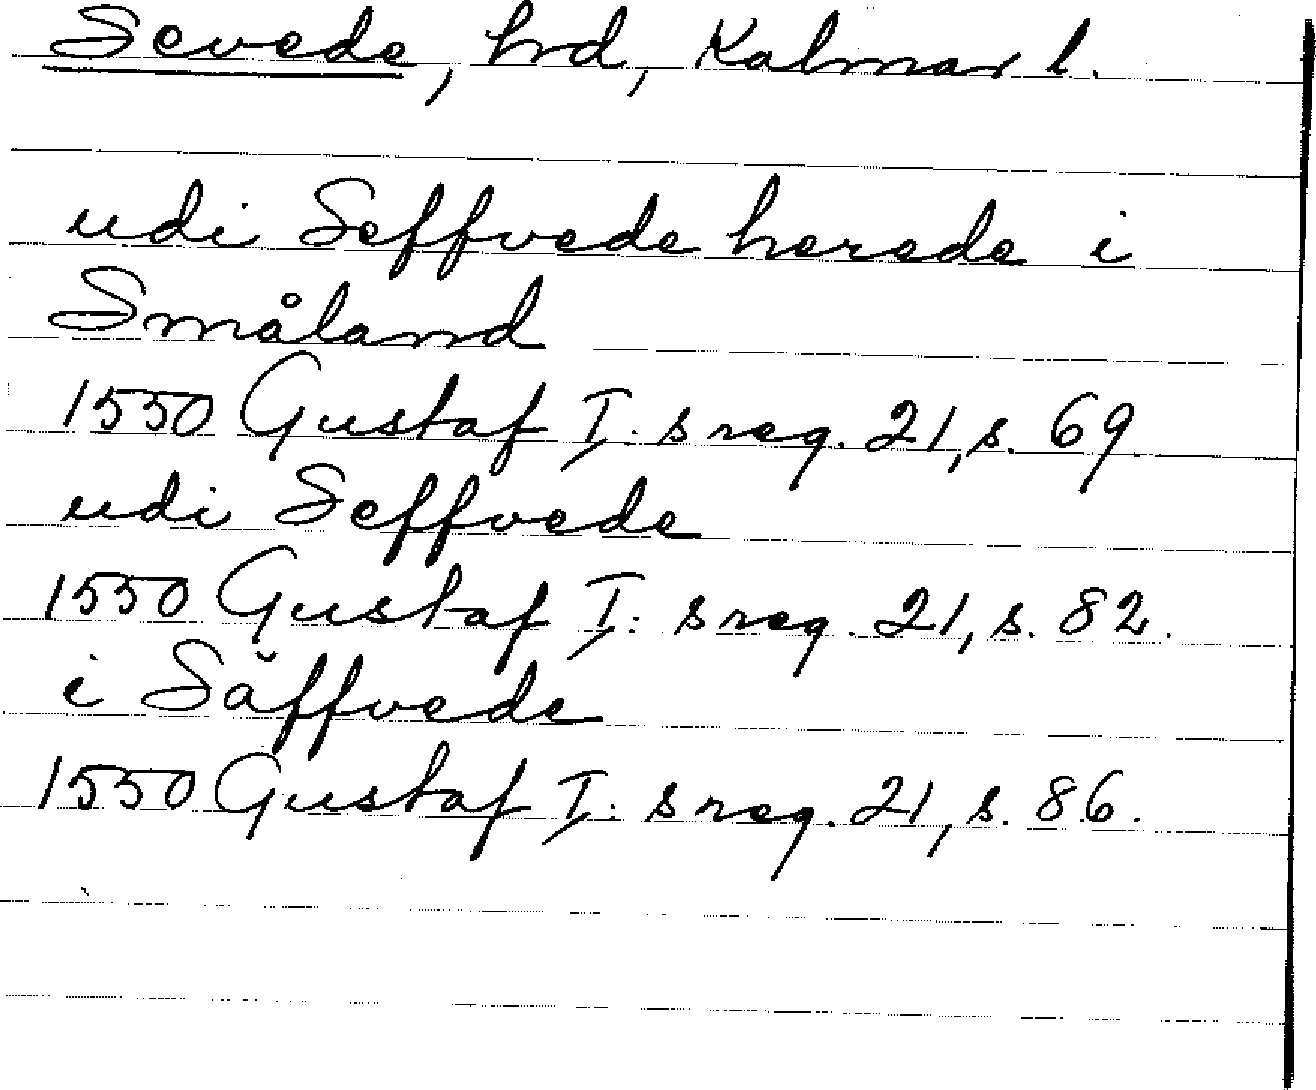 Sevede, hrd, Kalmar l.
udi Seffvede herede i
Småland
1550 Gustaf I:s reg. 21, s. 69
udi Seffvede
1550 Gustaf I:s reg. 21, s. 82.
i Säffvede
1550 Gustaf I:s reg. 21, s. 86.